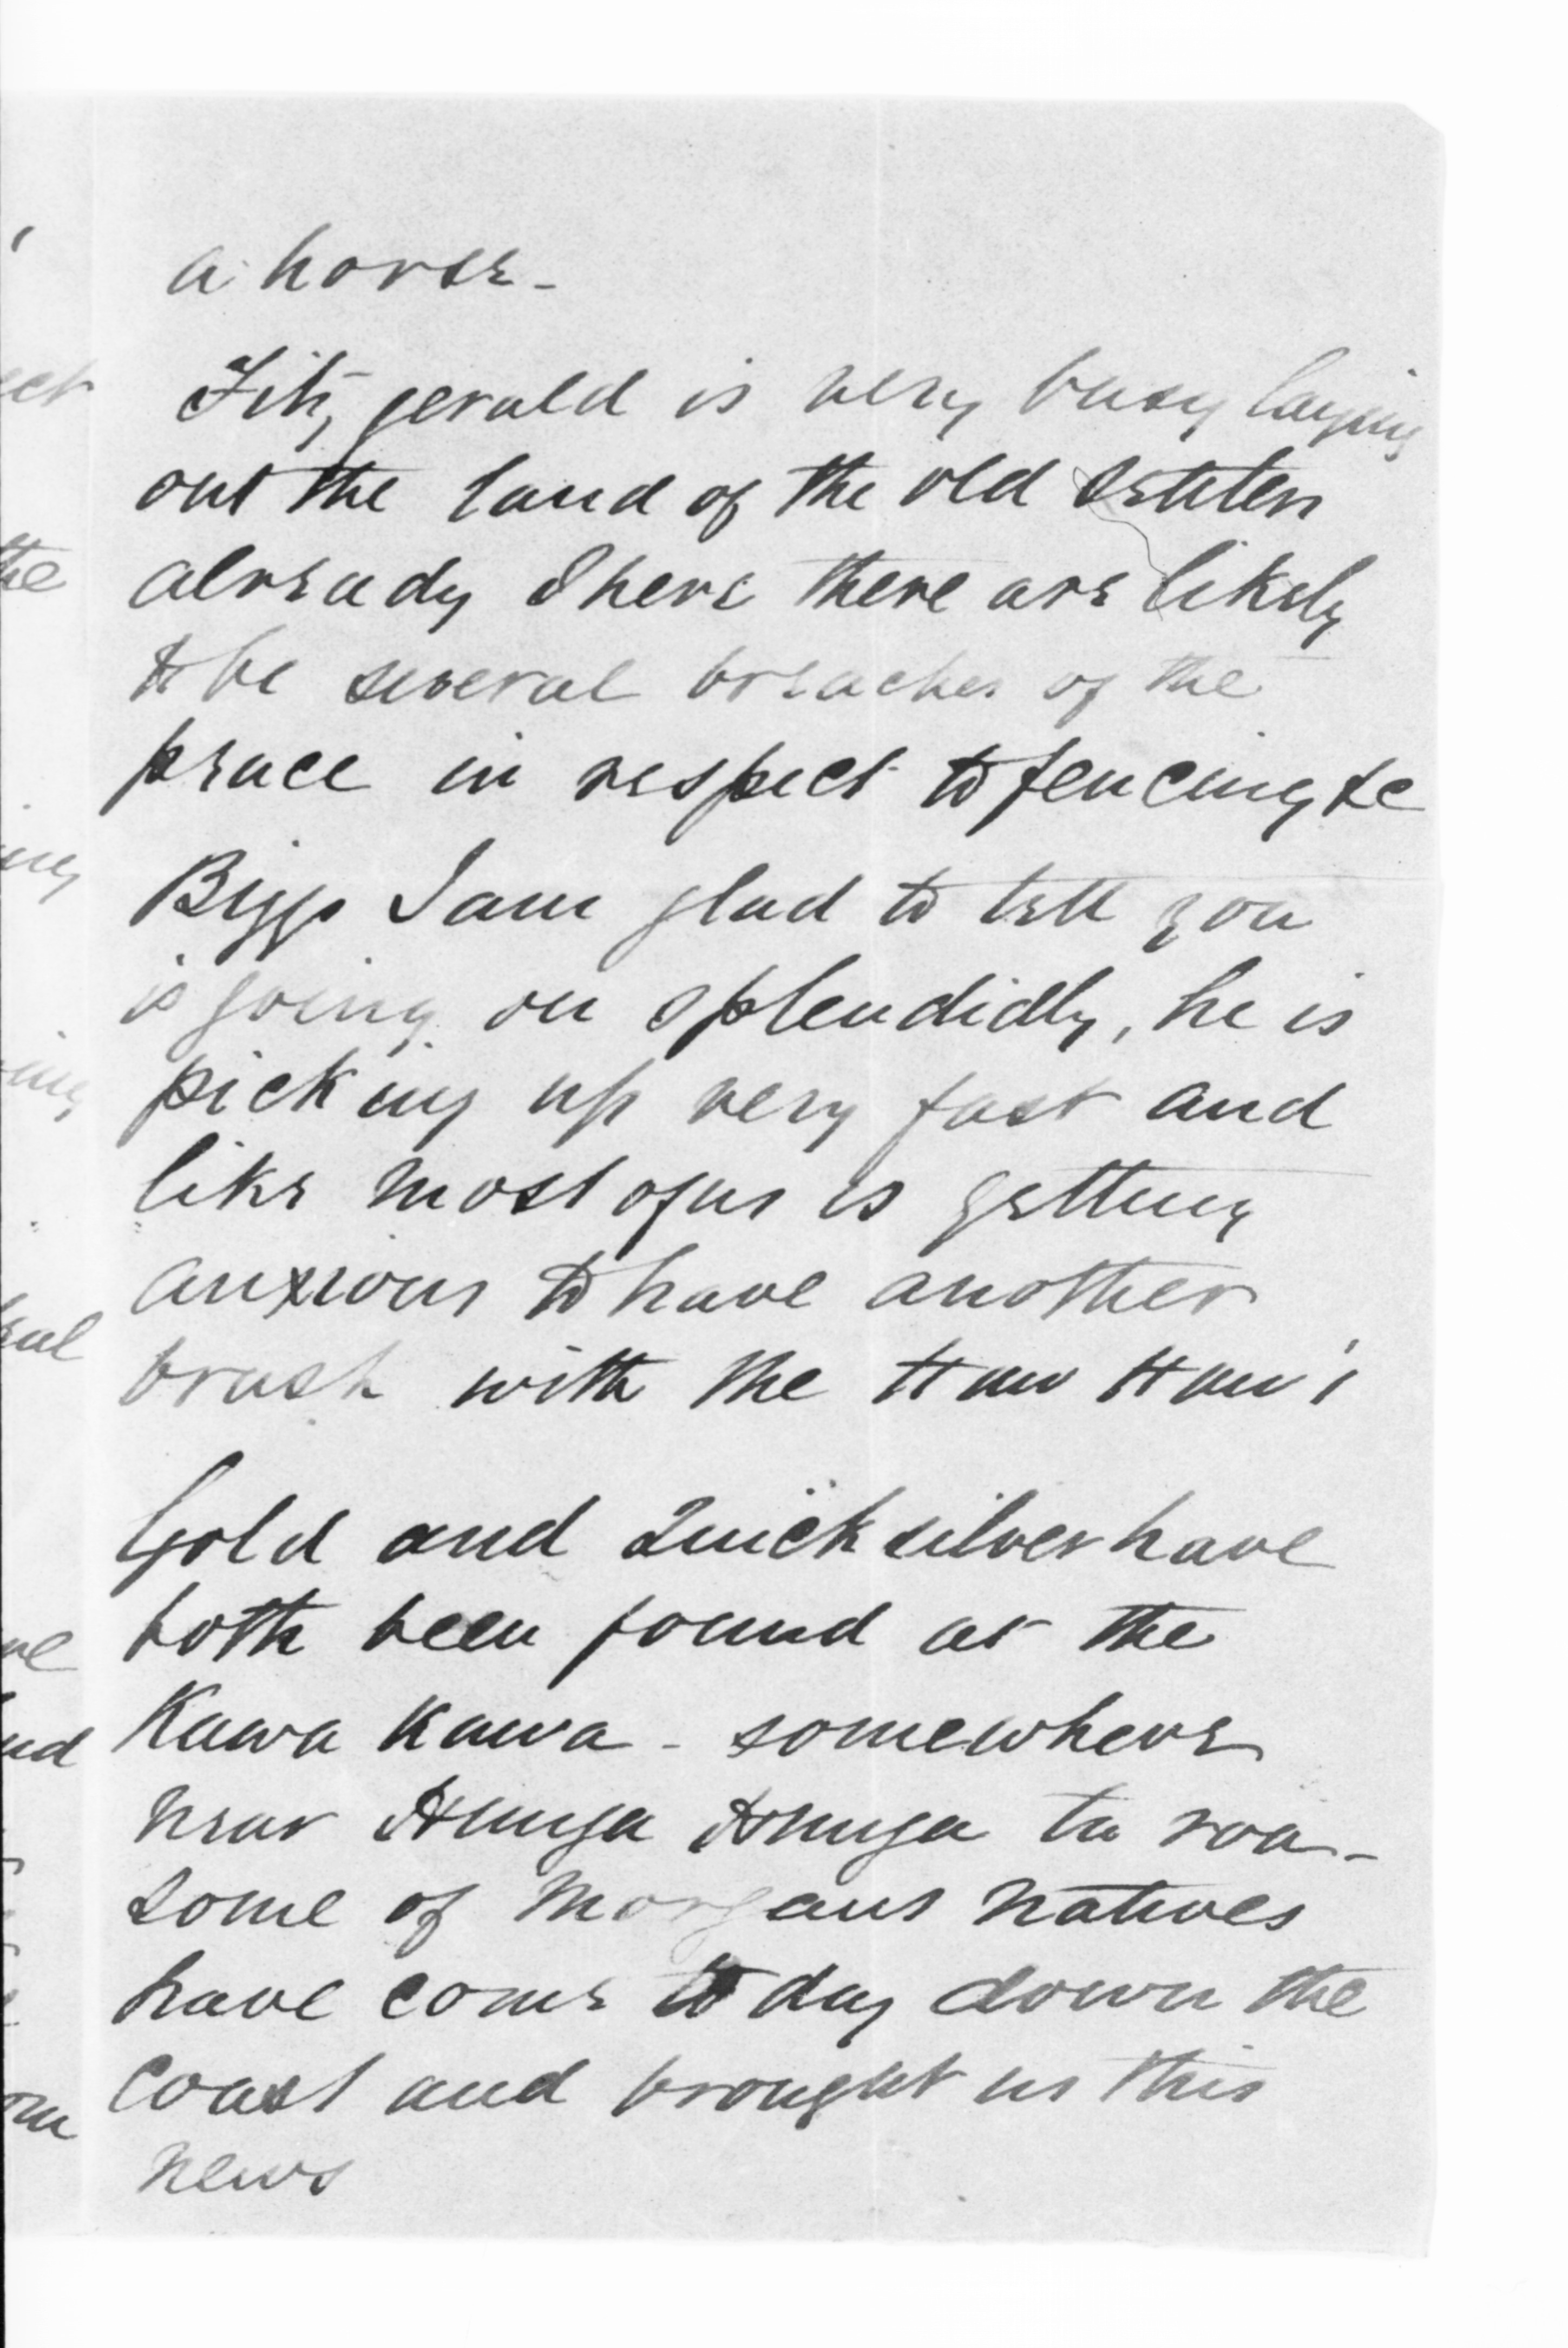 a horse -
Fitzgerald is very busy laying
out the land of the old settlers
already & here there are likely
to be several breaches of the
peace in respect to fencing &c
Biggs I am glad to tell you
is going on splendidly, he is
picking up very fast and
like most of us is getting
anxious to have another
brush with the Hau Hau's
Gold and Quicksilver have
both been found at the
Kawa Kawa - somewhere
near Hunga Hunga ta roa -
some of Morgans natives
have come to day down the
Coast and brought us this
news